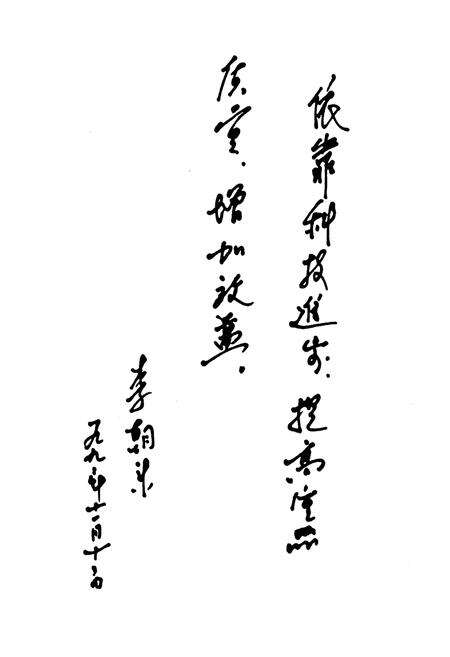 依靠科技進步.提高產品
质量.增加效益.
李朝
年十一月十二日